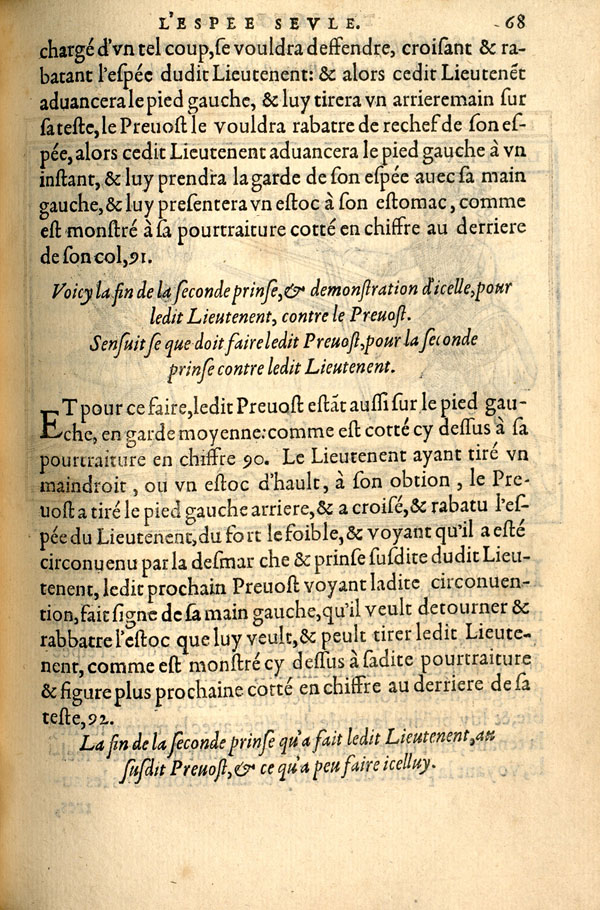 L'ESPEE SEVLE. 68
chargé d'vn tel coup, se vouldra deffendre, croisant & ra-
batant l'espée dudit Lieutenent: & alors cedit Lieutenẽt
aduancera le pied gauche, & luy tirera vn arrieremain sur
sa teste, le Preuost le vouldra rabatre de rechef de son es-
pée, alors cedit Lieutenent aduancera le pied gauche à vn
instant, & luy prendra la garde de son espée auec sa main
gauche, & luy presentera vn estoc à son estomac, comme
est monstré à sa pourtraiture cotté en chiffre au derriere
de son col, 91.
Voicy la fin de la seconde prinse, & demonstration d'icelle, pour
ledit Lieutenent, contre le Preuost.
Sensuit se que doit faire ledit Preuost, pour la seconde
prinse contre ledit Lieutenent.
ET pour ce faire, ledit Preuost estãt aussi sur le pied gau-
che, en garde moyenne: comme est cotté cy dessus à sa
pourtraiture en chiffre 90. Le Lieutenent ayant tiré vn
maindroit, ou vn estoc d'hault, à son obtion, le Pre-
uost a tiré le pied gauche arriere, & a croisé, & rabatu l'es-
pée du Lieutenent, du fort le foible, & voyant qu'il a esté
circonuenu par la desmar che & prinse susdite dudit Lieu-
tenent, ledit prochain Preuost voyant ladite circonuen-
tion, fait signe de sa main gauche, qu'il veult detourner &
rabbatre l'estoc que luy veult, & peult tirer ledit Lieute-
nent, comme est monstré cy dessus à sadite pourtraiture
& figure plus prochaine cotté en chiffre au derriere de sa
teste, 92.
La fin de la seconde prinse qu'a fait ledit Lieutenent, au
susdit Preuost, & ce qu'a peu faire icelluy.